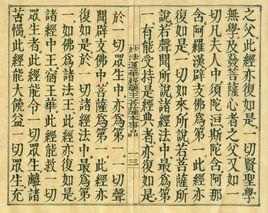 之父此經亦復如是一切賢聖學
無學及發菩薩心者之父又如一
切凡夫人中須陀洹斯陀含阿那
含阿羅漢辟支佛為第一此經亦
復如是一切如來所說若菩薩所
說若聲聞所說諸經法中最為第
一有能受持是經典者亦復如是
妙法蓮華經藥王菩薩本事品 三
於一切眾生中亦為第一一切聲
聞辟支佛中菩薩為第一此經亦
復如是於一切諸經法中最為第
一如佛為諸法王此經亦復如是
諸經中王宿王華此經能救一切
眾生者此經能令一切眾生離諸
苦惱此經能大饒益一切眾生充